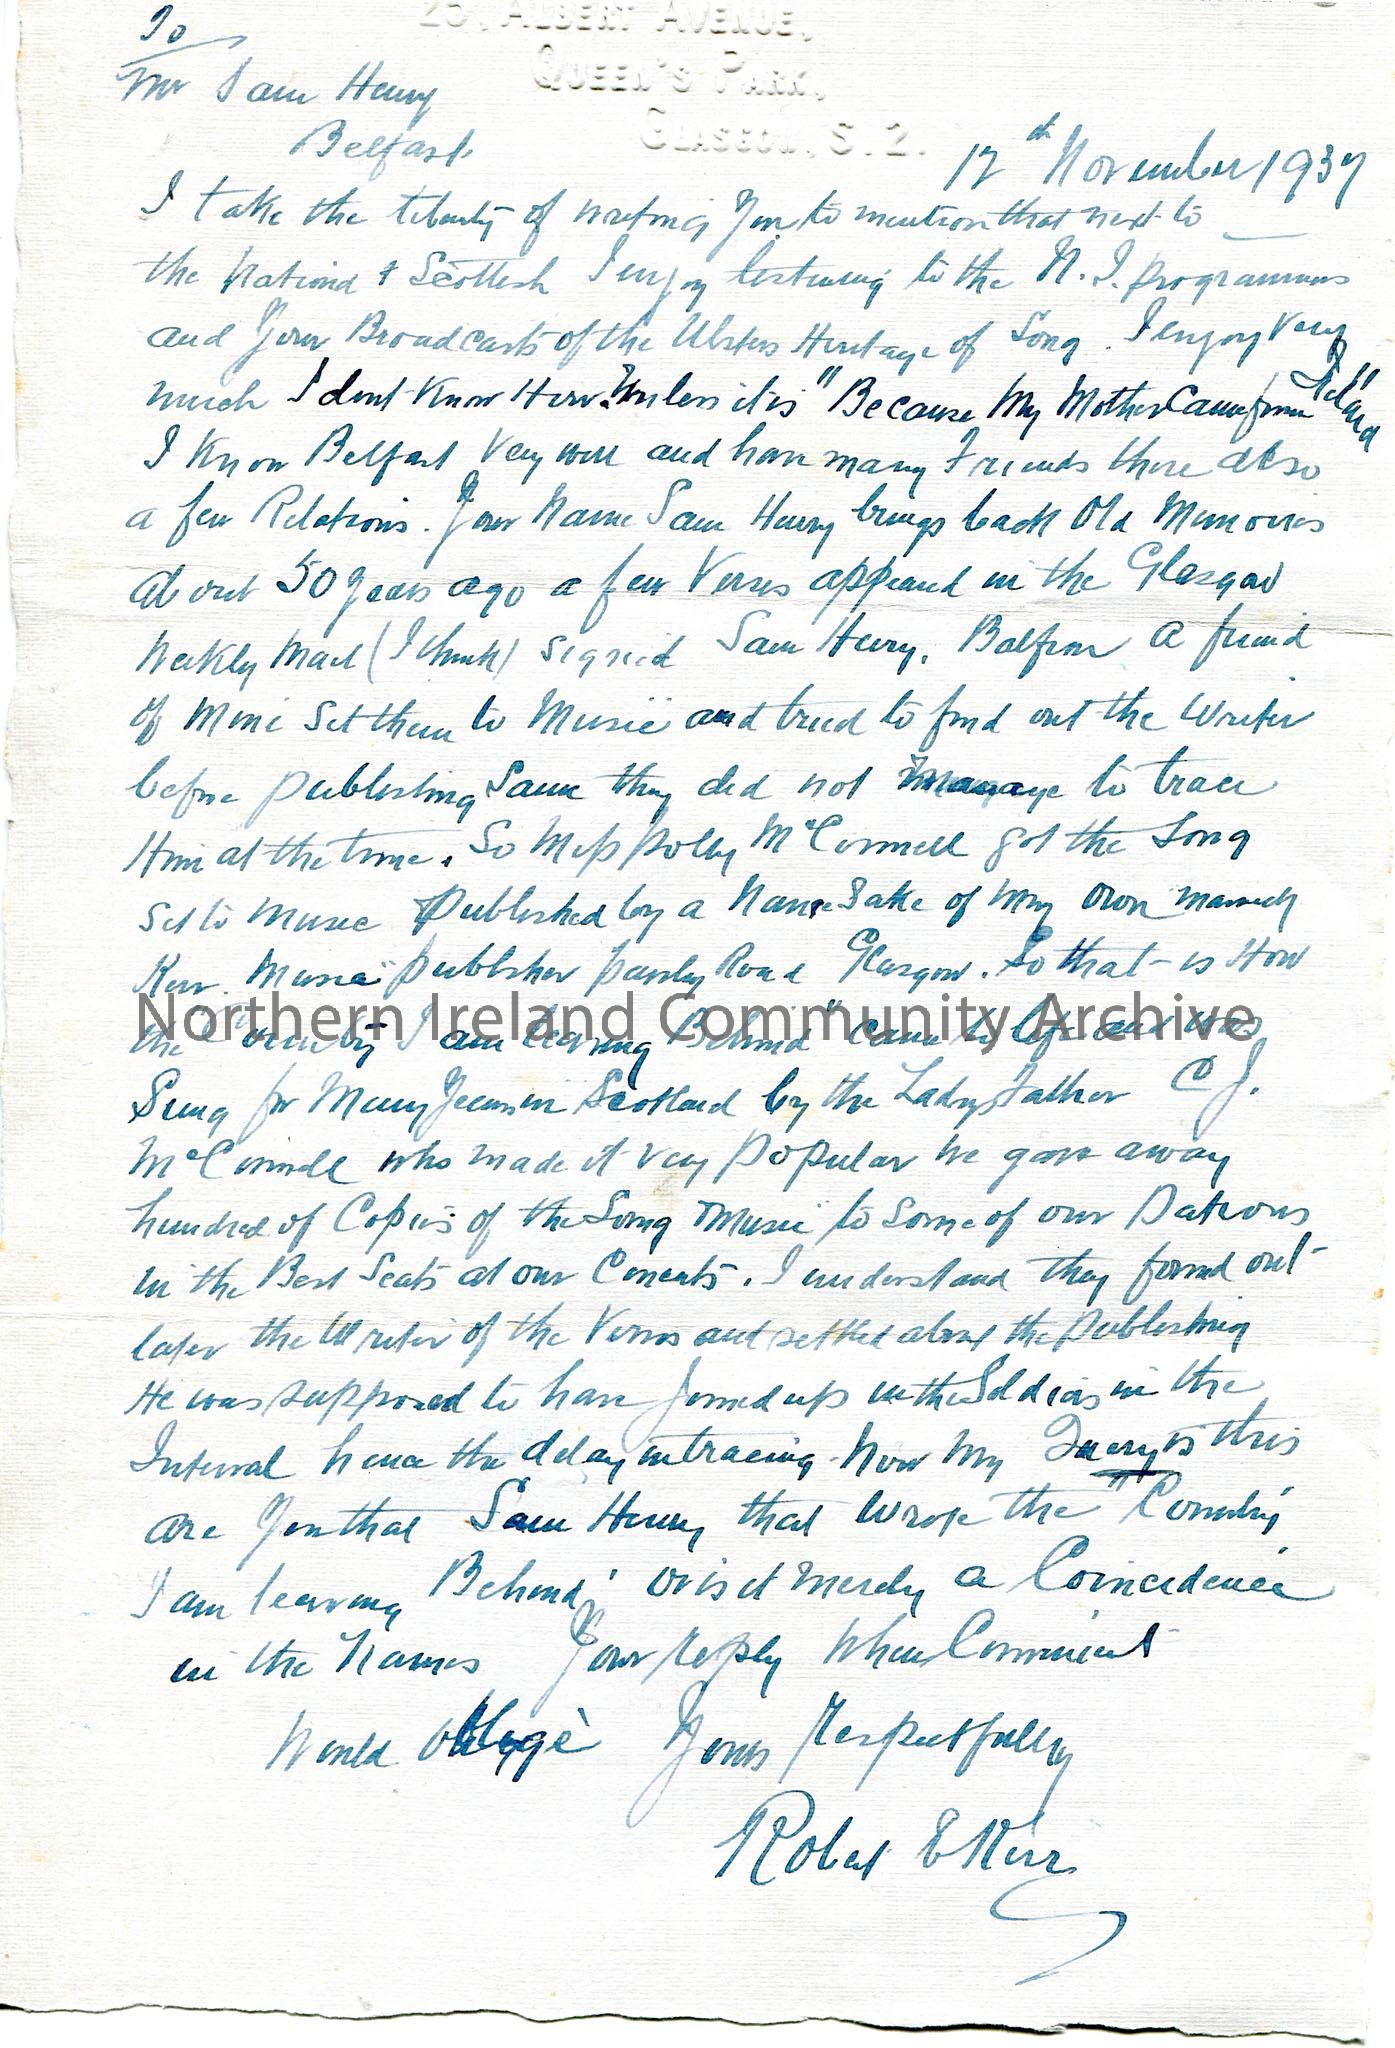 25, ALBERT AVENUE,
QUEEN'S PARK,
GLASGOW, S.2.
To
Mr Sam Henry
Belfast.
12th November 1937
I take the liberty of writing You to mention that next to
the National & Scottish I enjoy listening to the N.I. programmes
and Your Broadcasts of the Ulsters Heritage of Song. I enjoy Very
much I dont Know How. Unless it is "Because My Mother Came from Ireland"
I Know Belfast Very well and have many Friends there also
a few Relations. Your Name Sam Henry brings back Old Memories
about 50 Years ago a few Verses appeared in the Glasgow
Weekly Mail (I think) signed Sam Henry, Balfron a friend
of Mine Set them to Music and tried to find out the Writer
before publishing Same they did not Manage to trace
Him at the time. So Miss Polly McConnell got the Song
Set to Music Published by a Name Sake of My Own namely
Kerr. Music publisher Paisley Road Glasgow. So that is How
the "Country I am leaving Behind" came to life and was
Sung for Many Years in Scotland by the Ladys Father C J.
McConnell who made it very popular We gave away
hundred of Copies of the Song & Music to Some of our Patrons
in the Best Seats at our Concerts. I understand they found out
later the Writer of the Verses and settled about the publishing
He was supposed to have joined up in the Soldiers in the
Interval hence the delay in tracing. Now My Query is this
are You that Sam Henry that Wrote the "Country
I am leaving Behind" or is it merely a Coincedence
in the Names Your reply When Convenient
Would Oblige Yours Respectfully
Robert E Kerr
Northern Ireland Community Archive